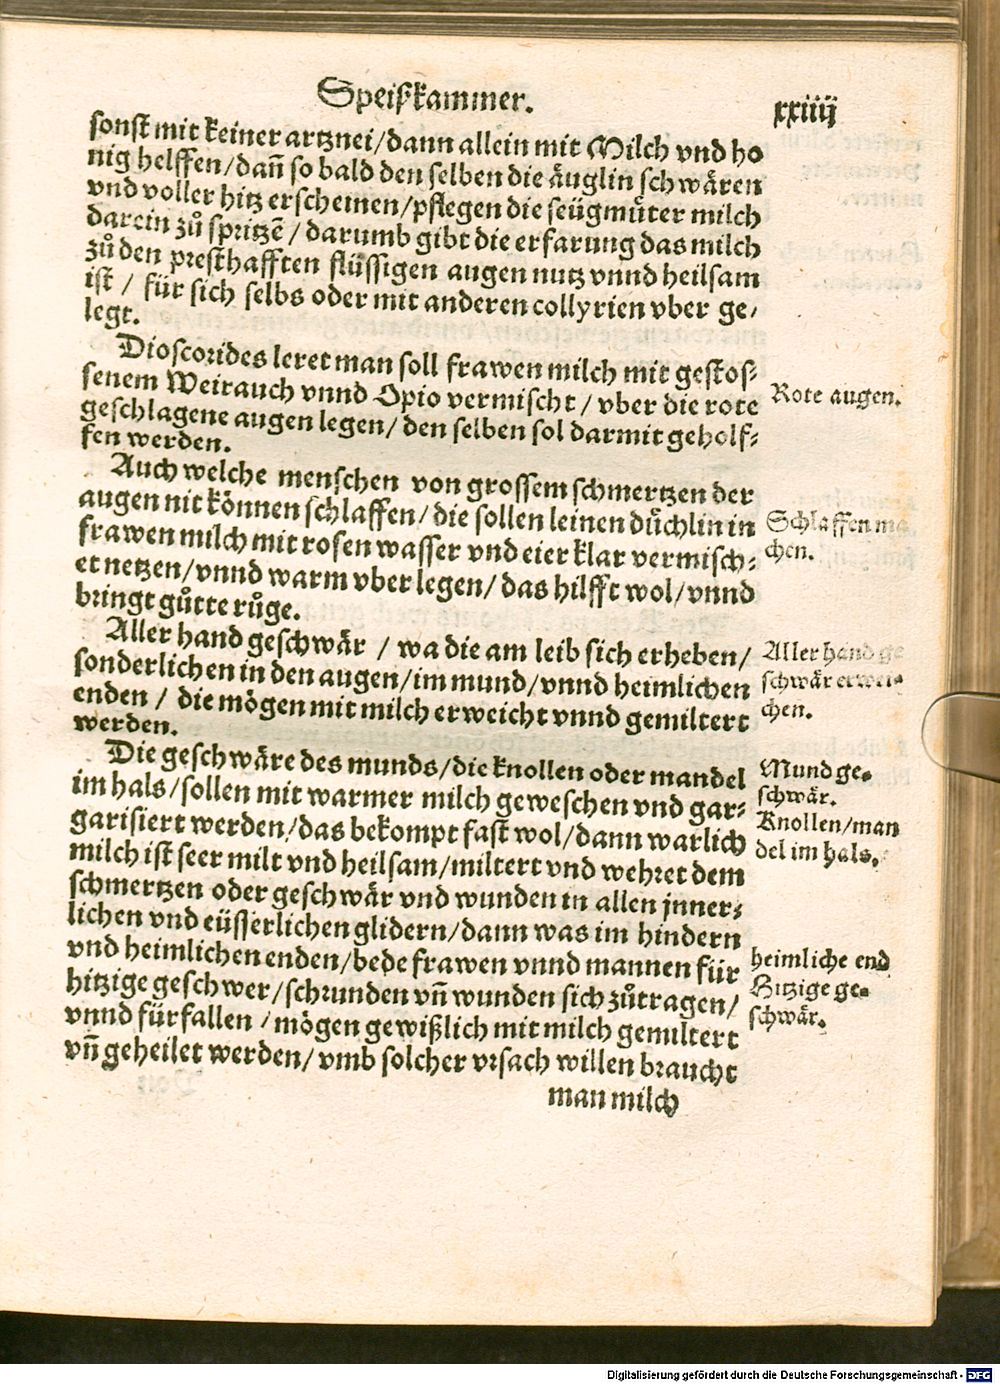 Speißkammer.
xxiiij
sonst mit keiner artznei/dann allein mit Milch vnd ho
nig helffen/dañ so bald den selben die äuglin schwären
vnd voller hitz erscheinen/pflegen die seügmůter milch
darein zů spritzẽ/darumb gibt die erfarung das milch
zů den presthafften flüssigen augen nutz vnnd heilsam
ist/für sich selbs oder mit anderen collyrien vber ge/
legt.
Dioscorides leret man soll frawen milch mit gestos⸗
senem Weirauch vnnd Opio vermischt/vber die rote
geschlagene augen legen/den selben sol darmit geholf⸗
fen werden.
Rote augen.
Auch welche menschen von grossem schmertzen der
augen nit können schlaffen/die sollen leinen düchlin in
frawen milch mit rosen wasser vnd eier klar vermisch⸗
et netzen/vnnd warm vber legen/das hilfft wol/vnnd
bringt gůtte růge.
Schlaffen ma
chen.
Aller hand geschwär/wa die am leib sich erheben/
sonderlichen in den augen/im mund/vnnd heimlichen
enden/die mögen mit milch erweicht vnnd gemiltert
werden.
Aller hand ge
schwär erwei⸗
chen.
Die geschwäre des munds/die knollen oder mandel
im hals/sollen mit warmer milch geweschen vnd gar⸗
garisiert werden/das bekompt fast wol/dann warlich
milch ist seer milt vnd heilsam/miltert vnd wehret dem
schmertzen oder geschwär vnd wunden in allen jnner⸗
lichen vnd eüsserlichen glidern/dann was im hindern
vnd heimlichen enden/bede frawen vnnd mannen für
hitzige geschwer/schrunden vñ wunden sich zůtragen/
vnnd fürfallen/mögen gewißlich mit milch gemiltert
vñ geheilet werden/vmb solcher vrsach willen braucht
Mund ge⸗
schwär.
Knollen/man
del im hals.
heimliche end
Hitzige ge⸗
schwär.
man milch
Digitalisierung gefördert durch die Deutsche Forschungsgemeinschaft - DFG